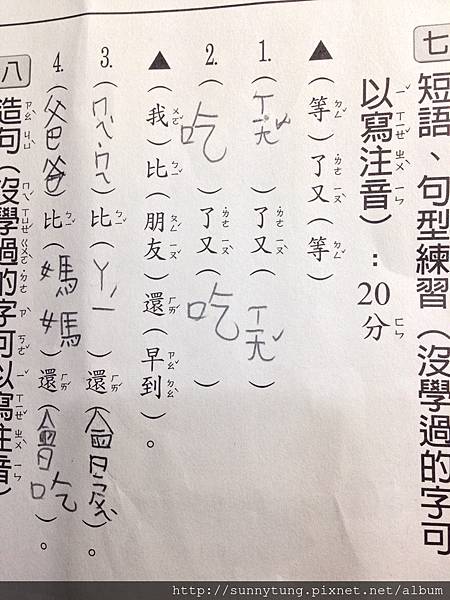 七 短語、句型練習（沒學過的字可
以寫注音）：20分
▲（等）了又（等）
1.（ㄒㄧㄤˇ）了又（ㄒㄧㄤˇ）
2.（吃）了又（吃）
▲（我）比（朋友）還（早到）。
3.（ㄇㄟˋㄇㄟ˙）比（ㄚㄧˊ）還（會）。
4.（爸爸）比（媽媽）還（會吃）。
八 造句（沒學過的字可以寫注音）
http://sunnytung.pixnet.net/album